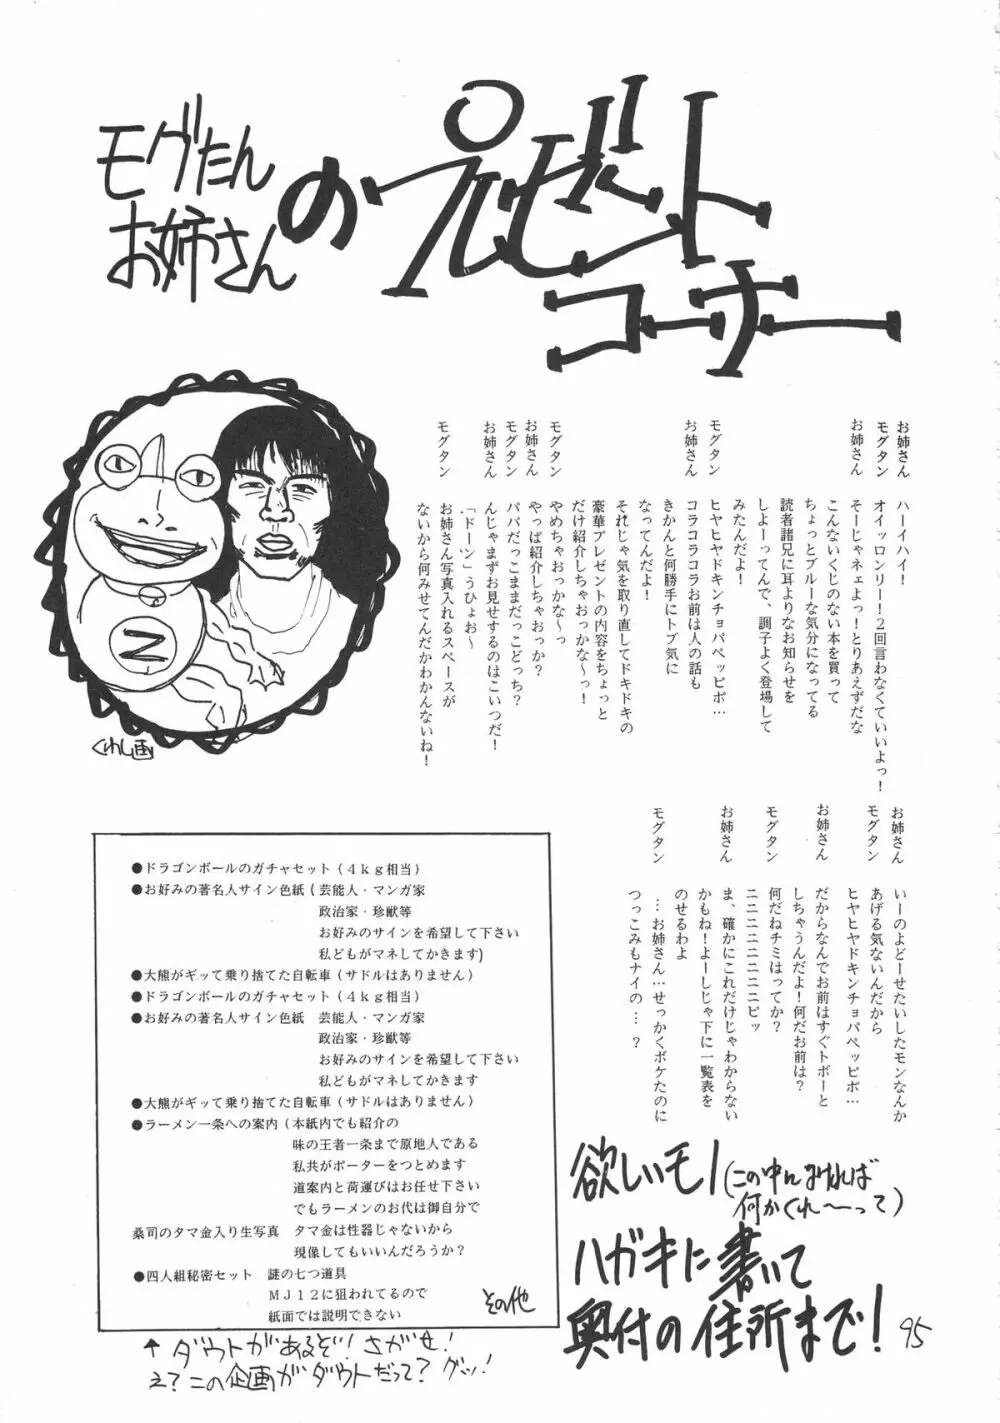 モグたん
お姉さん
の
プレゼント
コーナー
お姉さん　ハーイハイ！
モグタン　オイッロンリー！２回言わなくていいよっ！
お姉さん　そーじゃネェよっ！とりあえずだな
こんないくじのない本を買って
ちょっとブルーな気分になってる
読者諸兄に耳よりなお知らせを
しよーってんで、調子よく登場して
みたんだよ！
モグタン　ヒヤヒヤドキンチョパペッピポ…
お姉さん　コラコラコラお前は人の話も
きかんと何勝手にトブ気に
なってんだよ！
それじゃ気を取り直してドキドキの
豪華プレゼントの内容をちょっと
だけ紹介しちゃおっかな〜っ！
モグタン　やめちゃおっかな〜っ
お姉さん　やっぱ紹介しちゃおっか？
モグタン　パパだっこままだっこどっち？
お姉さん　んじゃまずお見せするのはこいつだ！
「ドーン」うひょお〜
モグタン　お姉さん写真入れるスペースが
ないから何みせてんだかわかんないね！
くわし画
お姉さん　いーのよどーせたいしたモンなんか
あげる気ないんだから
モグタン　ヒヤヒヤドキンチョパペッピポ…
お姉さん　だからなんでお前はすぐトボーと
しちゃうんだよ！何だお前は？
モグタン　何だねチミはってか？
ニニニニニニニピッ
お姉さん　ま、確かにこれだけじゃわからない
かもね！よーしじゃ下に一覧表を
のせるわよ
モグタン　…お姉さん…せっかくボケたのに
つっこみもナイの…？
●ドラゴンボールのガチャセット（４ｋｇ相当）
●お好みの著名人サイン色紙（芸能人・マンガ家
政治家・珍獣等
お好みのサインを希望して下さい
私どもがマネしてかきます)
●大熊がギッて乗り捨てた自転車（サドルはありません）
●ドラゴンボールのガチャセット（４ｋｇ相当）
●お好みの著名人サイン色紙　芸能人・マンガ家
政治家・珍獣等
お好みのサインを希望して下さい
私どもがマネしてかきます
●大熊がギッて乗り捨てた自転車（サドルはありません）
●ラーメン一条への案内（本紙内でも紹介の
味の王者一条まで原地人である
私共がポーターをつとめます
道案内と荷運びはお任せ下さい
でもラーメンのお代は御自分で
桑司のタマ金入り生写真　タマ金は性器じゃないから
現像してもいいんだろうか？
●四人組秘密セット　謎の七つ道具
ＭＪ１２に狙われてるので
紙面では説明できない
その他
↑ ダウトがあるぞ！さがせ！
え？この企画がダウトだって？グッ！
欲しいモノ（この中んなければ
何かくれ〜って）
ハガキに書いて
奥付の住所まで！
95